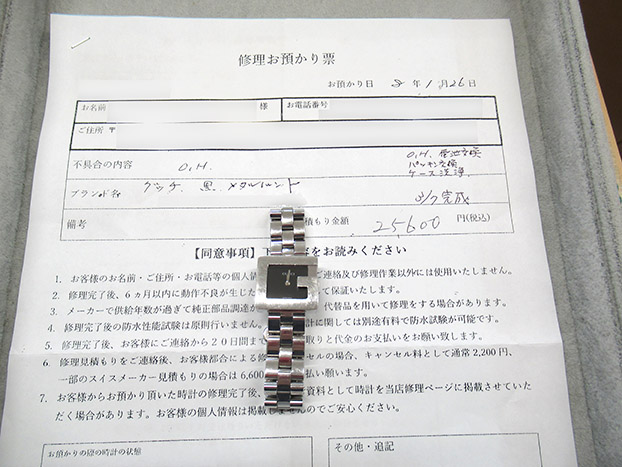 修理お預かり票
お預かり日 2年1月26日
お名前 様 お電話番号
ご住所 〒
不具合の内容 O.H. O.H. 電池交換
パッキン交換
ケース洗浄
ブランド名 グッチ 黒 メタルバンド 2/7完成
備考 積もり金額 25,600 円(税込)
【同意事項】下 をお読みください
1. お客様のお名前・ご住所・お電話等の個人情 ご連絡及び修理作業以外には使用いたしません。
2. 修理完了後、6ヵ月以内に動作不良が生じた て保証いたします。
3. メーカーで供給年数が過ぎて純正部品調達か 代替品を用いて修理をする場合があります。
4. 修理完了後の防水性能試験は原則行いません。 計に関しては別途有料で防水試験が可能です。
5. 修理完了後、お客様にご連絡から20日間まで 取りと代金のお支払いをお願い致します。
6. 修理見積もりをご連絡後、お客様都合による修 セルの場合、キャンセル料として通常2,200円、
一部のスイスメーカー見積もりの場合は6,600 払い願います。
7. お客様からお預かり頂いた時計の修理完了後、 資料として時計を当店修理ページに掲載させていた
だく場合があります。お客様の個人情報は掲載し んのでご安心ください。
お預かりの際の時計の状態 その他・追記